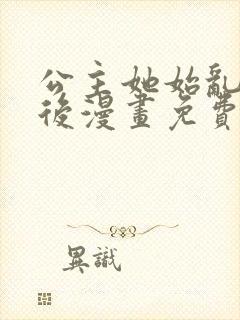 公主她始亂
後漫畫免費
異識